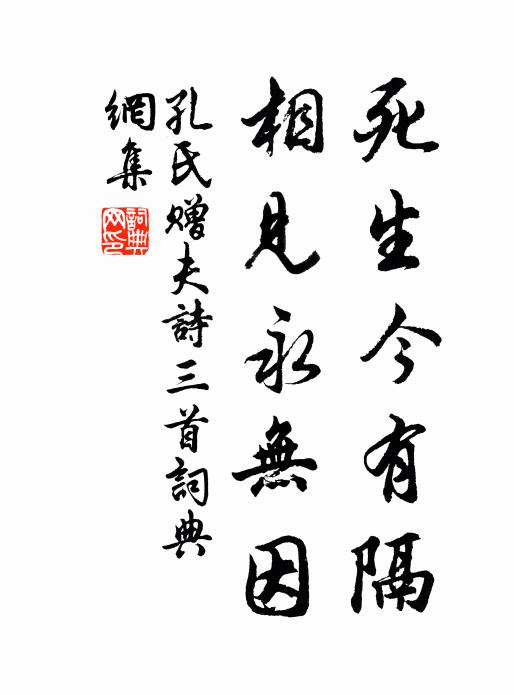 死生今有隔
相見永無因
孔氏贈夫詩三首詞典
網集
詞典網印